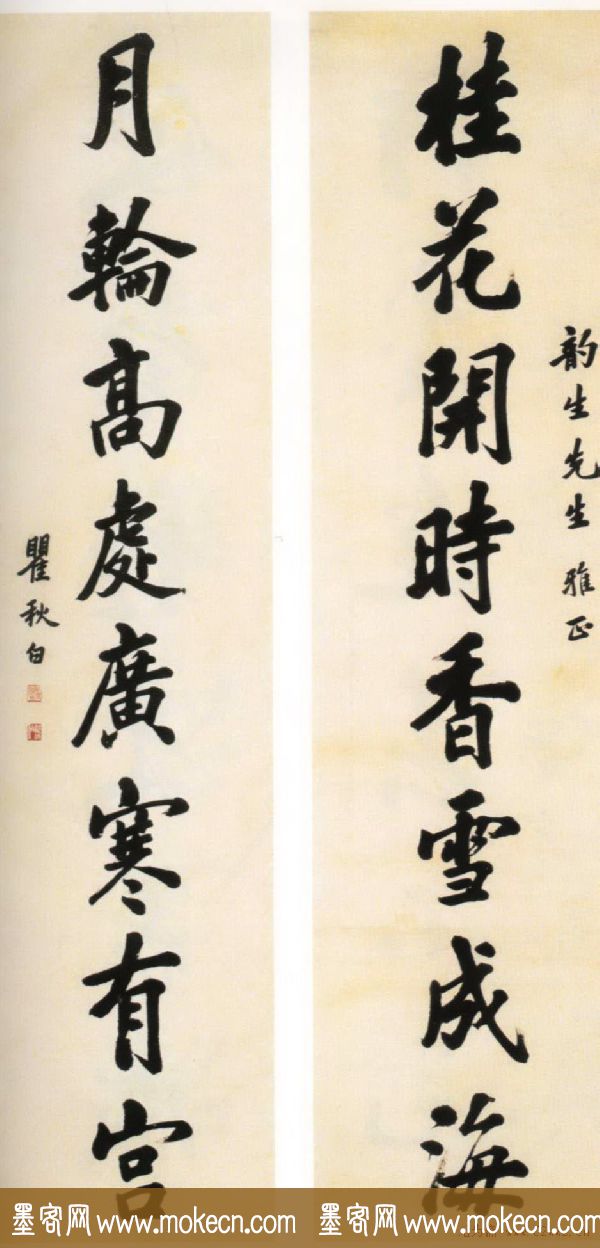 韵生先生雅正
桂花開時香雪成海
月輪高處廣寒有宫
瞿秋白
墨客网 www.mokecn.com 墨客网 www.mokecn.com